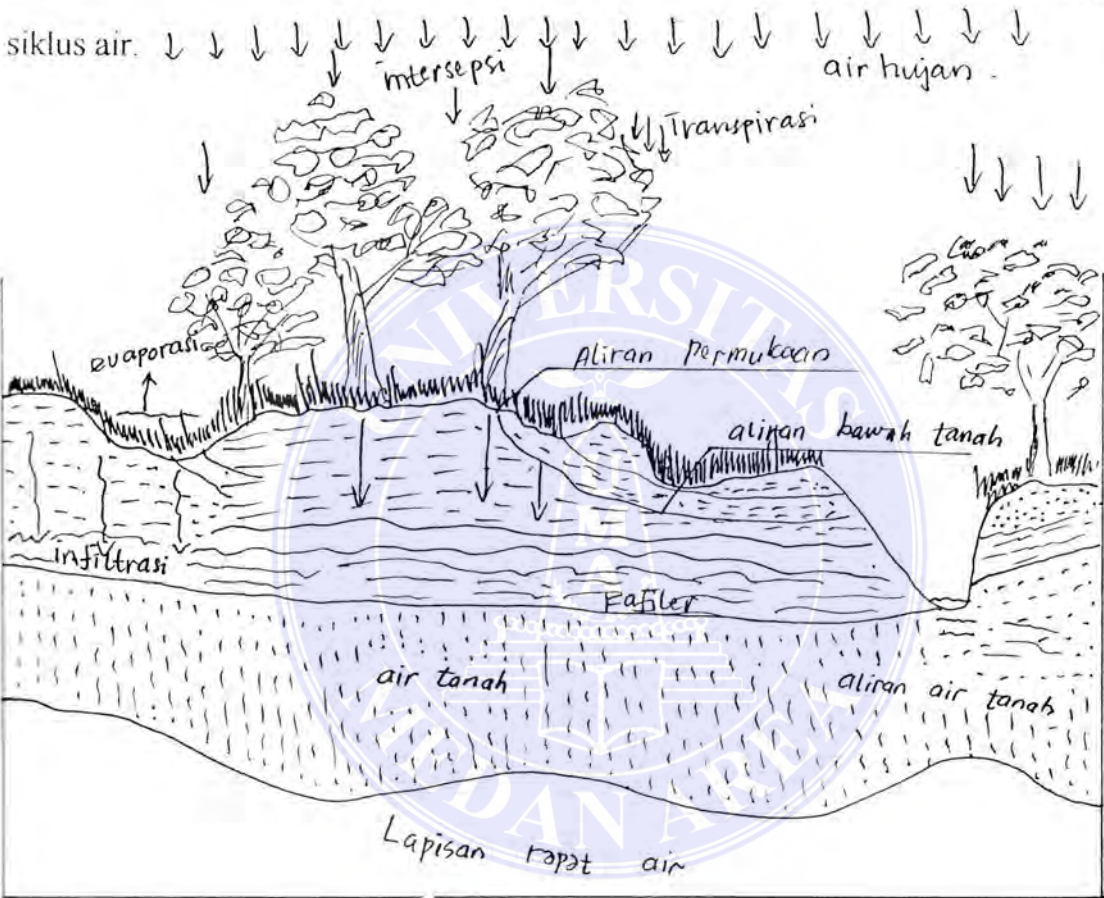 siklus air.
intersepsi
air hujan.
Transpirasi
evaporasi
Aliran Permukaan
aliran bawah tanah
infiltrasi
Fafiler
air tanah
aliran air tanah
Lapisan rapat air
UNIVERSITAS
MEDAN AREA